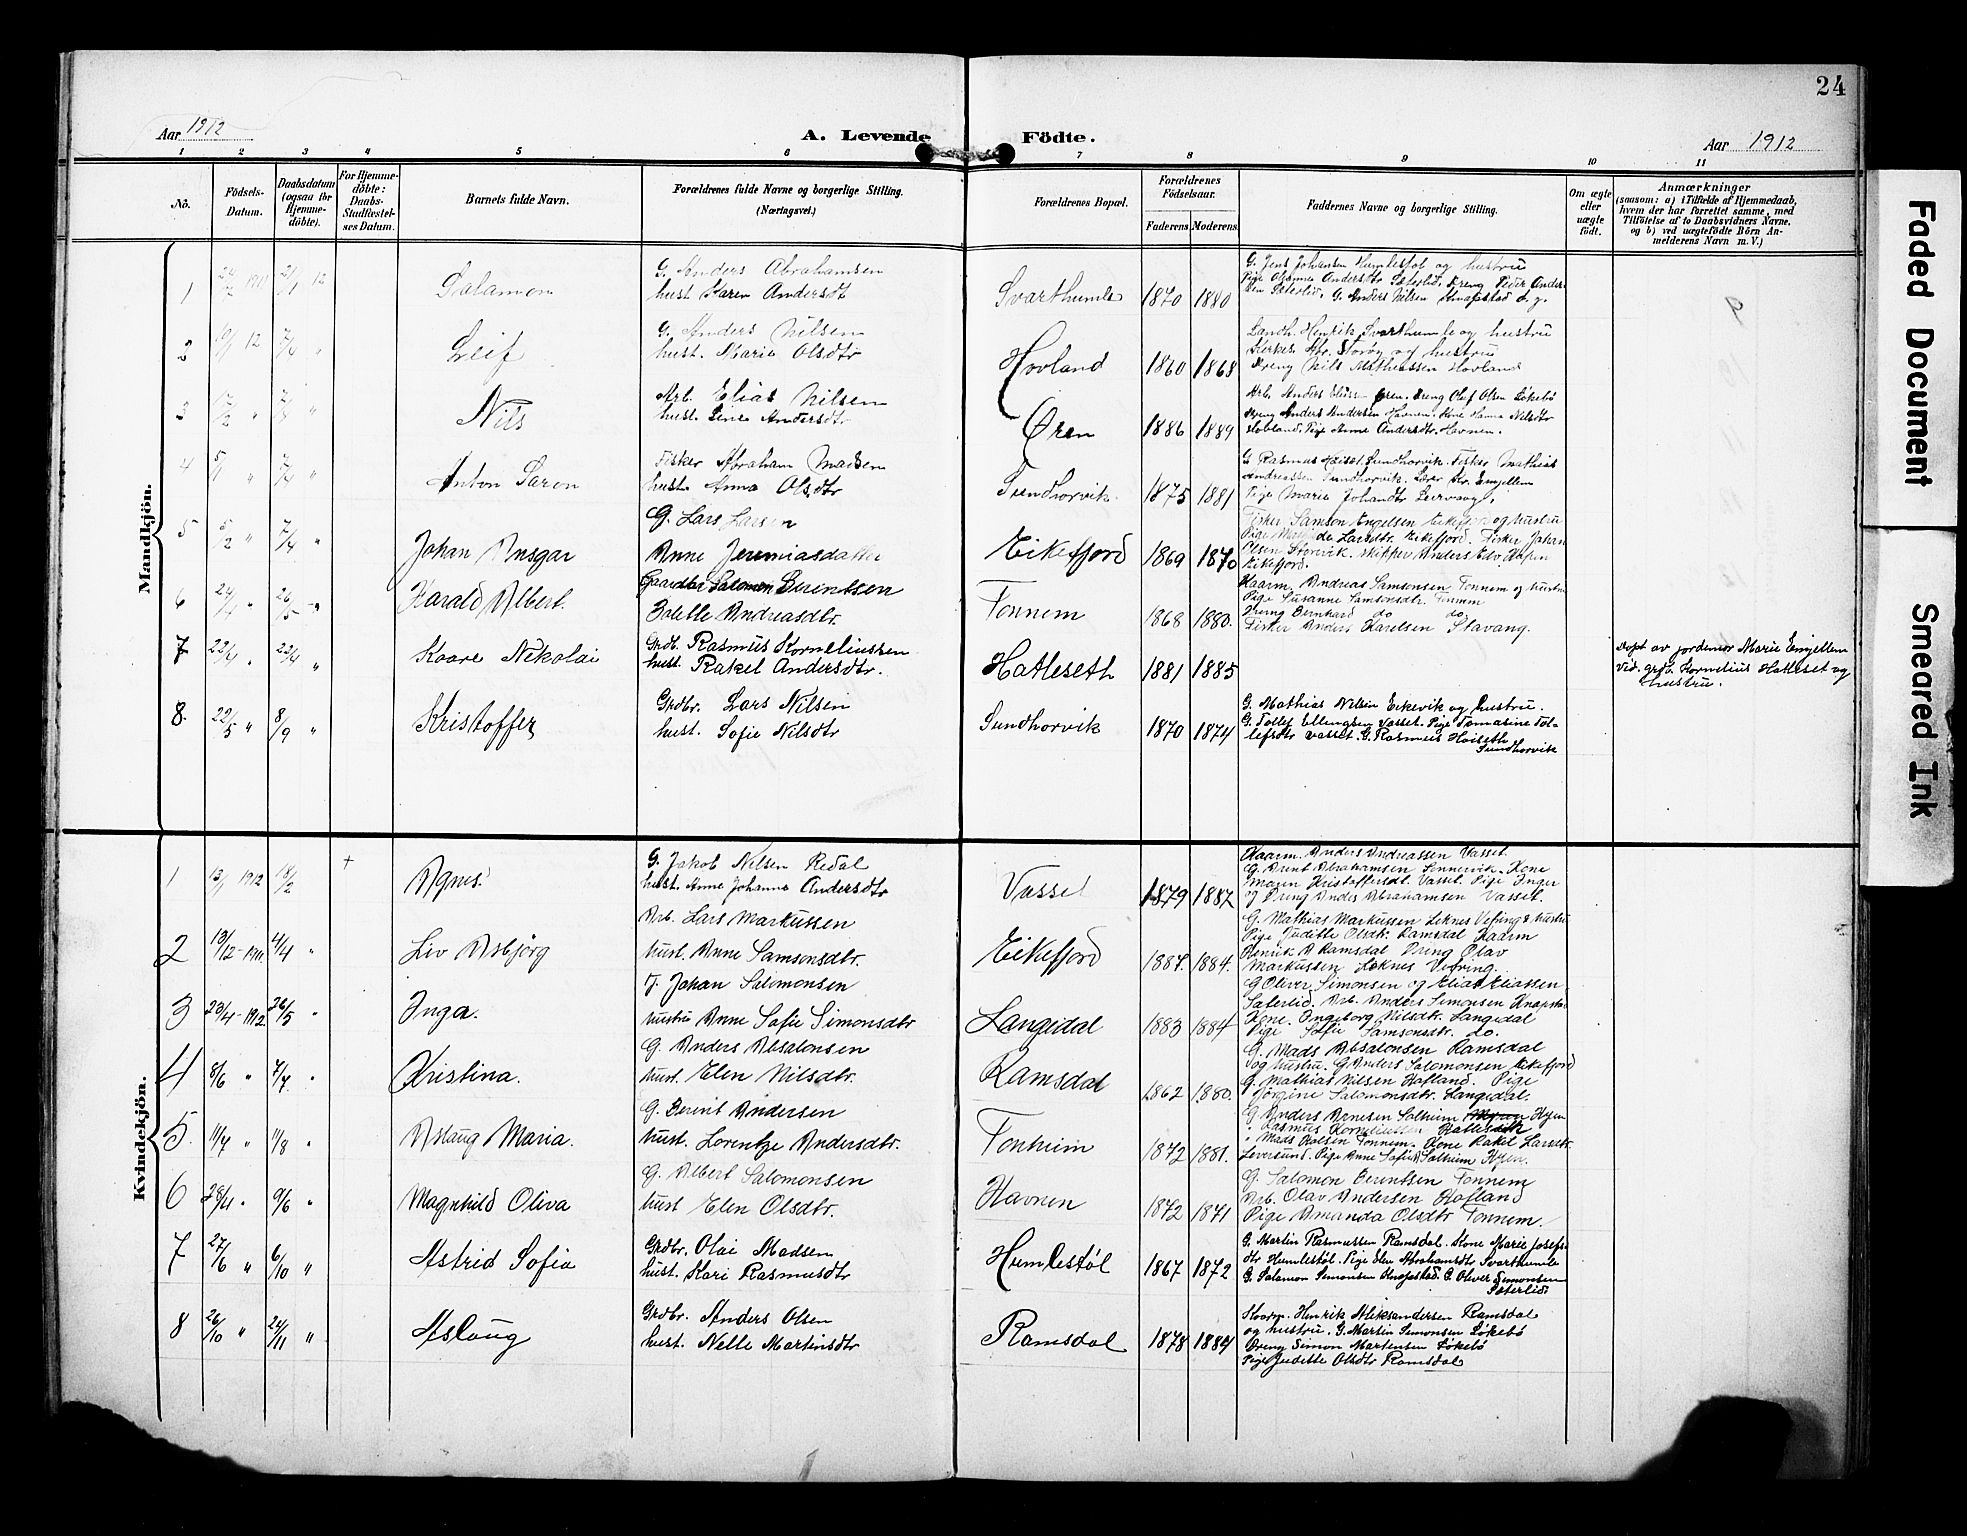 24
Aar 1912
A. Levende Födte.
Aar 1912
1 2 3 4 5 6 7 8 9 10 11
No.
Födsels-Datum.
Daabsdatum (ogsaa for Hjemme-döbte).
For Hjemme-döbte: Daabs-Stadfæstel-ses Datum.
Barnets fulde Navn.
Forældrenes fulde Navne og borgerlige Stilling.
(Næringsvei.)
Forældrenes Bopæl.
Forældrenes Födselsaar.
Faderens Moderens
Faddernes Navne og borgerlige Stilling.
Om ægte eller uægte födt.
Anmærkninger
(saasom: a) i Tilfælde af Hjemmedaab,
hvem der har forrettet samme, med
Tilföielse af to Daabsvidners Navne,
og b) ved uægtefödte Börn An-
melderens Navn m. V.)
Mandkjön.
1 2/1 12 Salamon
G. Anders Abrahamsen
hust Karen Andersdt
Svarthumle 1870 1880
G. Jens Johansen Humlestøl og hustru
2 12 7/4 " Leif
G. Anders Nilsen
hust. Marie Olsdtr
Hovland 1860 1868
Landh. Henrik Svarthumle og hustru
Dreng Nils Mathiassen Hovland
3 " Nils
Arb. Elias Nilsen
hust. Lina Andersdtr
Øren 1886 1889
Pige Anne Andersdtr. Havnen.
4 5/1 " 7/4 " Anton Søren
Fisker Abraham Madsen
hust. Anna Olsdtr
Sundhorvik. 1875 1881
G Rasmus Høiset Sundhorvik. Fisker Mathias
Andreassen Sundhorvik.
Pige Marie Johandtr Leirvaag.
5 5/2 " 7/4 " Johan Ansgar
G. Lars Larsen
Anne Jeremiasdatter
Eikefjord 1869 1870
Fisker Samson Engelsen Eikefjord og hustru
Eikefjord.
6 24/4 " 26/5 " Harald Albert.
Gaardbr Salomon Berentsen
Bolette Andreasdtr.
Tonnem 1868 1880.
Haarm. Andreas Samsonsen Tonnem og hustru
Pige Susanne Samsonsdtr. Tonnem
Dreng Bernhard do do
Fisker Anders Karelsen Stavang.
7 22/4 " 22/4 " Kaare Nikolai
Grdb. Rasmus Korneliussen
hust. Rakel Andersdtr.
Hatleseth 1881 1885
Døpt av jordemor Marie Engjellem
vid. grdb. Kornelius Hatleset og
hustru.
8. 22/5 " 8/9 " Kristoffer
Grdbr. Lars Nilsen
hust. Sofie Nilsdtr
Sundhorvik 1870 1874
G. Mathias Nilsen Eikevik og hustru.
G. Tollef Ellingsen Vasset. Pige Tomasine Tol-
lefsdtr Vasset. G. Rasmus Høiseth
Sundhorvik
Kvindekjön.
1 13/1 1912 18/2 + Agnes.
G. Jakob Nilsen Redal
hust. Anne Johanna Andersdtr
Vasset 1879 1887
Haarm. Anders Andreassen Vasset.
G. Berent Abrahamsen Sennervik. Kone
Maren Kristoffersdt. Vasset. Pige Inger
og Dreng Andes Abrahamsen Vasset.
2 19/12 - 1911 4/4 " Liv Asbjørg
Arb. Lars Markussen
hust. Anne Samsonsdtr.
Eikefjord 1887. 1884.
G. Mathias Markussen Leknes Vefring & hustru
Pige Juditte Olsdtr. Ramsdal Haarm
Henrik A Ramsdal Dreng Olav
Markussen Leknes Vefring.
3 23/4 - 1912 26/5 " Inga.
J. Johan Salomonsen
hustru Anne Sofie Simonsdtr
Langedal 1883 1884
G Oliver Simonsen og Elias Eliassen
Sæterlid. Arb. Anders Simonsen Knapstad
Kone. Ingeborg Nilsdtr. Langedal
Pige Sofie Samsonsdtr. do.
4 8/6 " 7/7 " Kristina.
G. Anders Absalonsen
hust. Elen Nilsdtr.
Ramsdal 1862 1880.
G. Mads Absalonsen Ramsdal
og hustru. G Anders Salomonsen Eikefjord
G. Mathias Nilsen Hofland. Pige
Jørgine Salomonsdtr. Langedal.
5 11/7 " 11/8 " Aslaug Maria.
G. Berent Andersen
hust. Lorentze Andersdtr.
Tonheim 1872 1881.
G Anders Arnesen Solheim Hyen
" Rasmus Korneliussen Hatleseth
" Mads Karlsen Tonnem. Kone Rakel Larsdtr.
Leversund. Pige Anne Sofie A Solheim Hyen.
6 28/4 " 9/6 " Magnhild Oliva
G. Albert Salomonsen
hust Elen Olsdtr.
Havnen 1872 1871
G. Salomon Berentsen Tonnem
Arb. Olav Andersen Hofland
Pige Amanda Olsdtr Tonnem.
7 27/6 " 6/10 " Astrid Sofia
Grdbr. Olai Madsen
hust. Kari Rasmusdtr
Humlestøl 1867 1872
G. Martin Rasmussen Ramsdal. Kone Marie Josefs-
dtr Humlestøl. Pige Elen Abrahamsdtr Svarthumle
G. Salamon Simonsen Knapstad. G. Oliver Simonsen
Sæterlid.
8 26/10 " 24/11 " Aslaug
Grdbr. Anders Olsen
hust. Nelle Martinsdtr
Ramsdal 1878 1884
Haarm. Henrik Aleksandersen Ramsdal
og hustru. G. Martin Simonsen Løkebø
Dreng Simon Martensen Løkebø
Pige Juditte Olsdtr Ramsdal
Faded Document
Smeared Ink